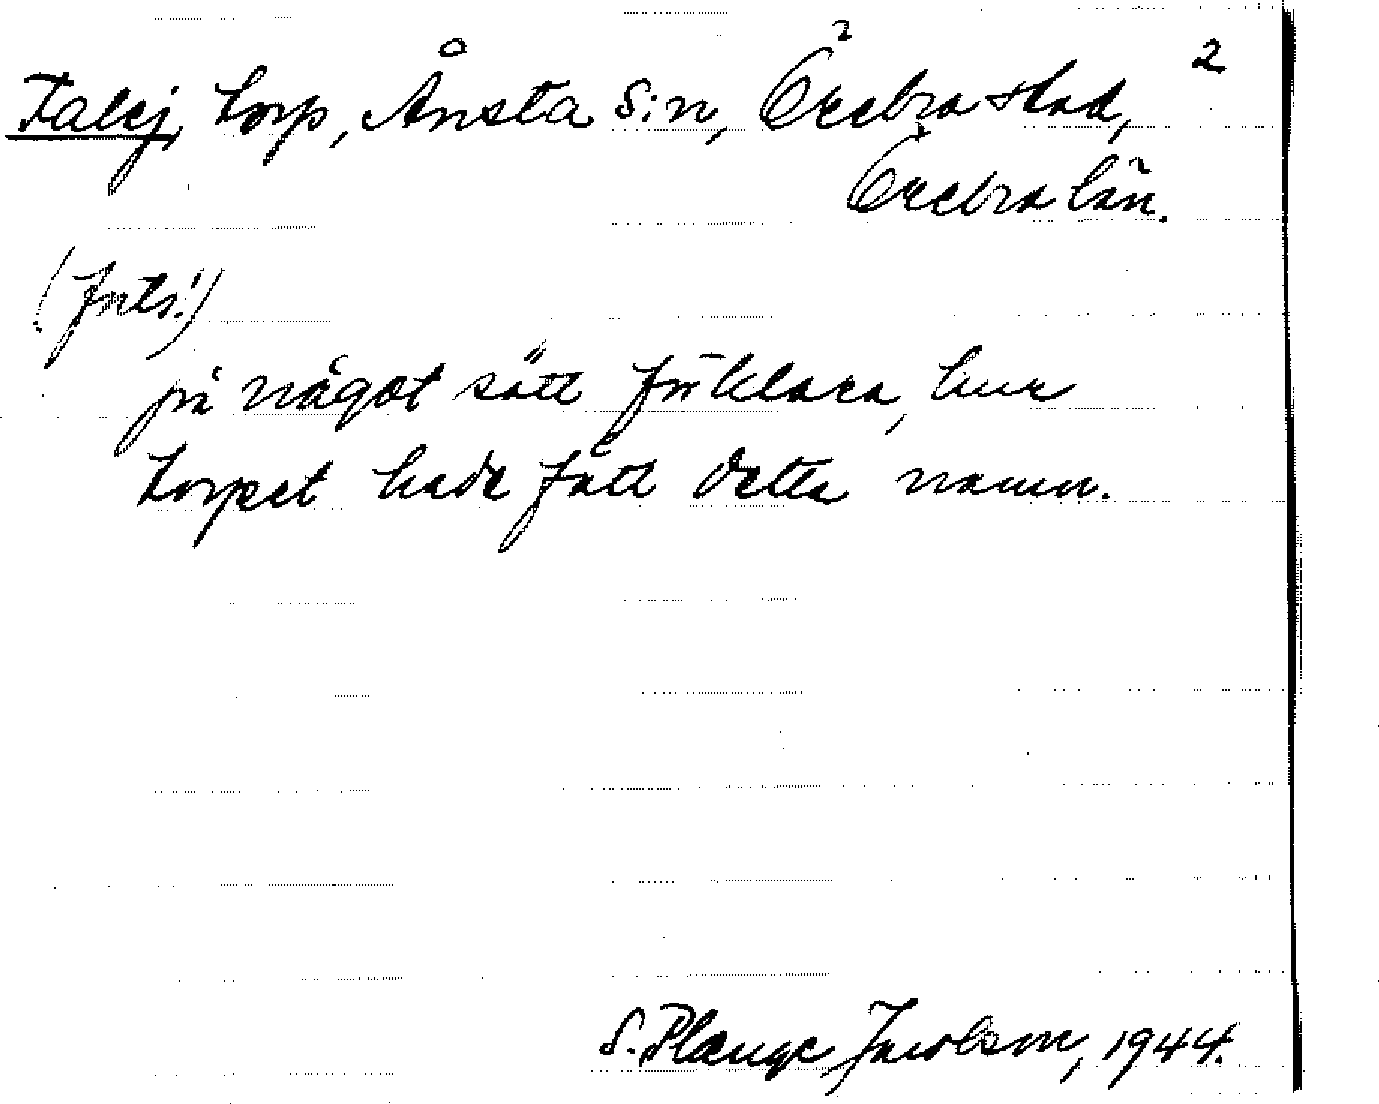 2
Talej, torp, Ånsta s:n, Örebro stad,
Örebro län.
(forts.)
på något sätt förklara, hur
torpet hade fått detta namn.
S. Plænge Jacobson, 1944.